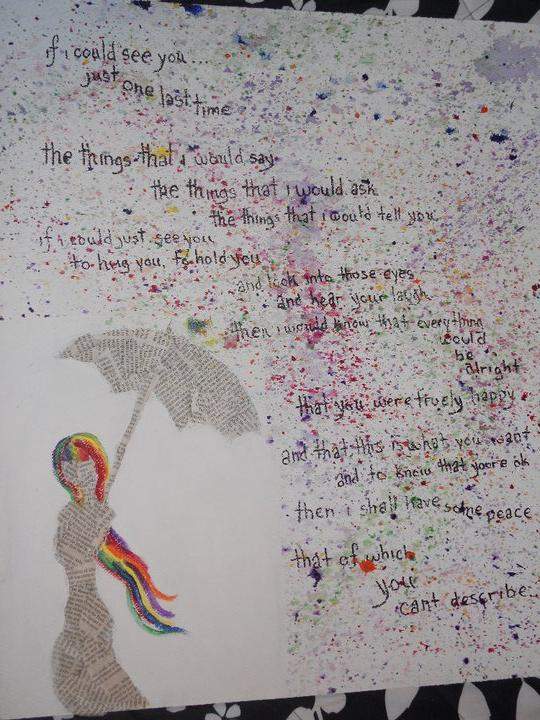 if i could see you...
just one last time
the things that i would say
the things that i would ask
the things that i would tell you
if i could just see you
to hug you, to hold you
and look into those eyes
and hear your laugh
then i would know that everything
would
be
alright
that you were truely happy
and that this is what you want
and to know that youre ok
then i shall have some peace
that of which
you
cant describe.